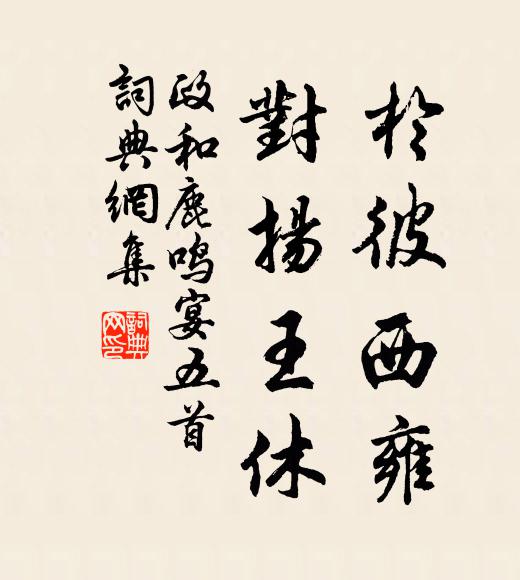 於彼西雍
對揚王休
政和鹿鳴宴五首
詞典網集
詞典网印